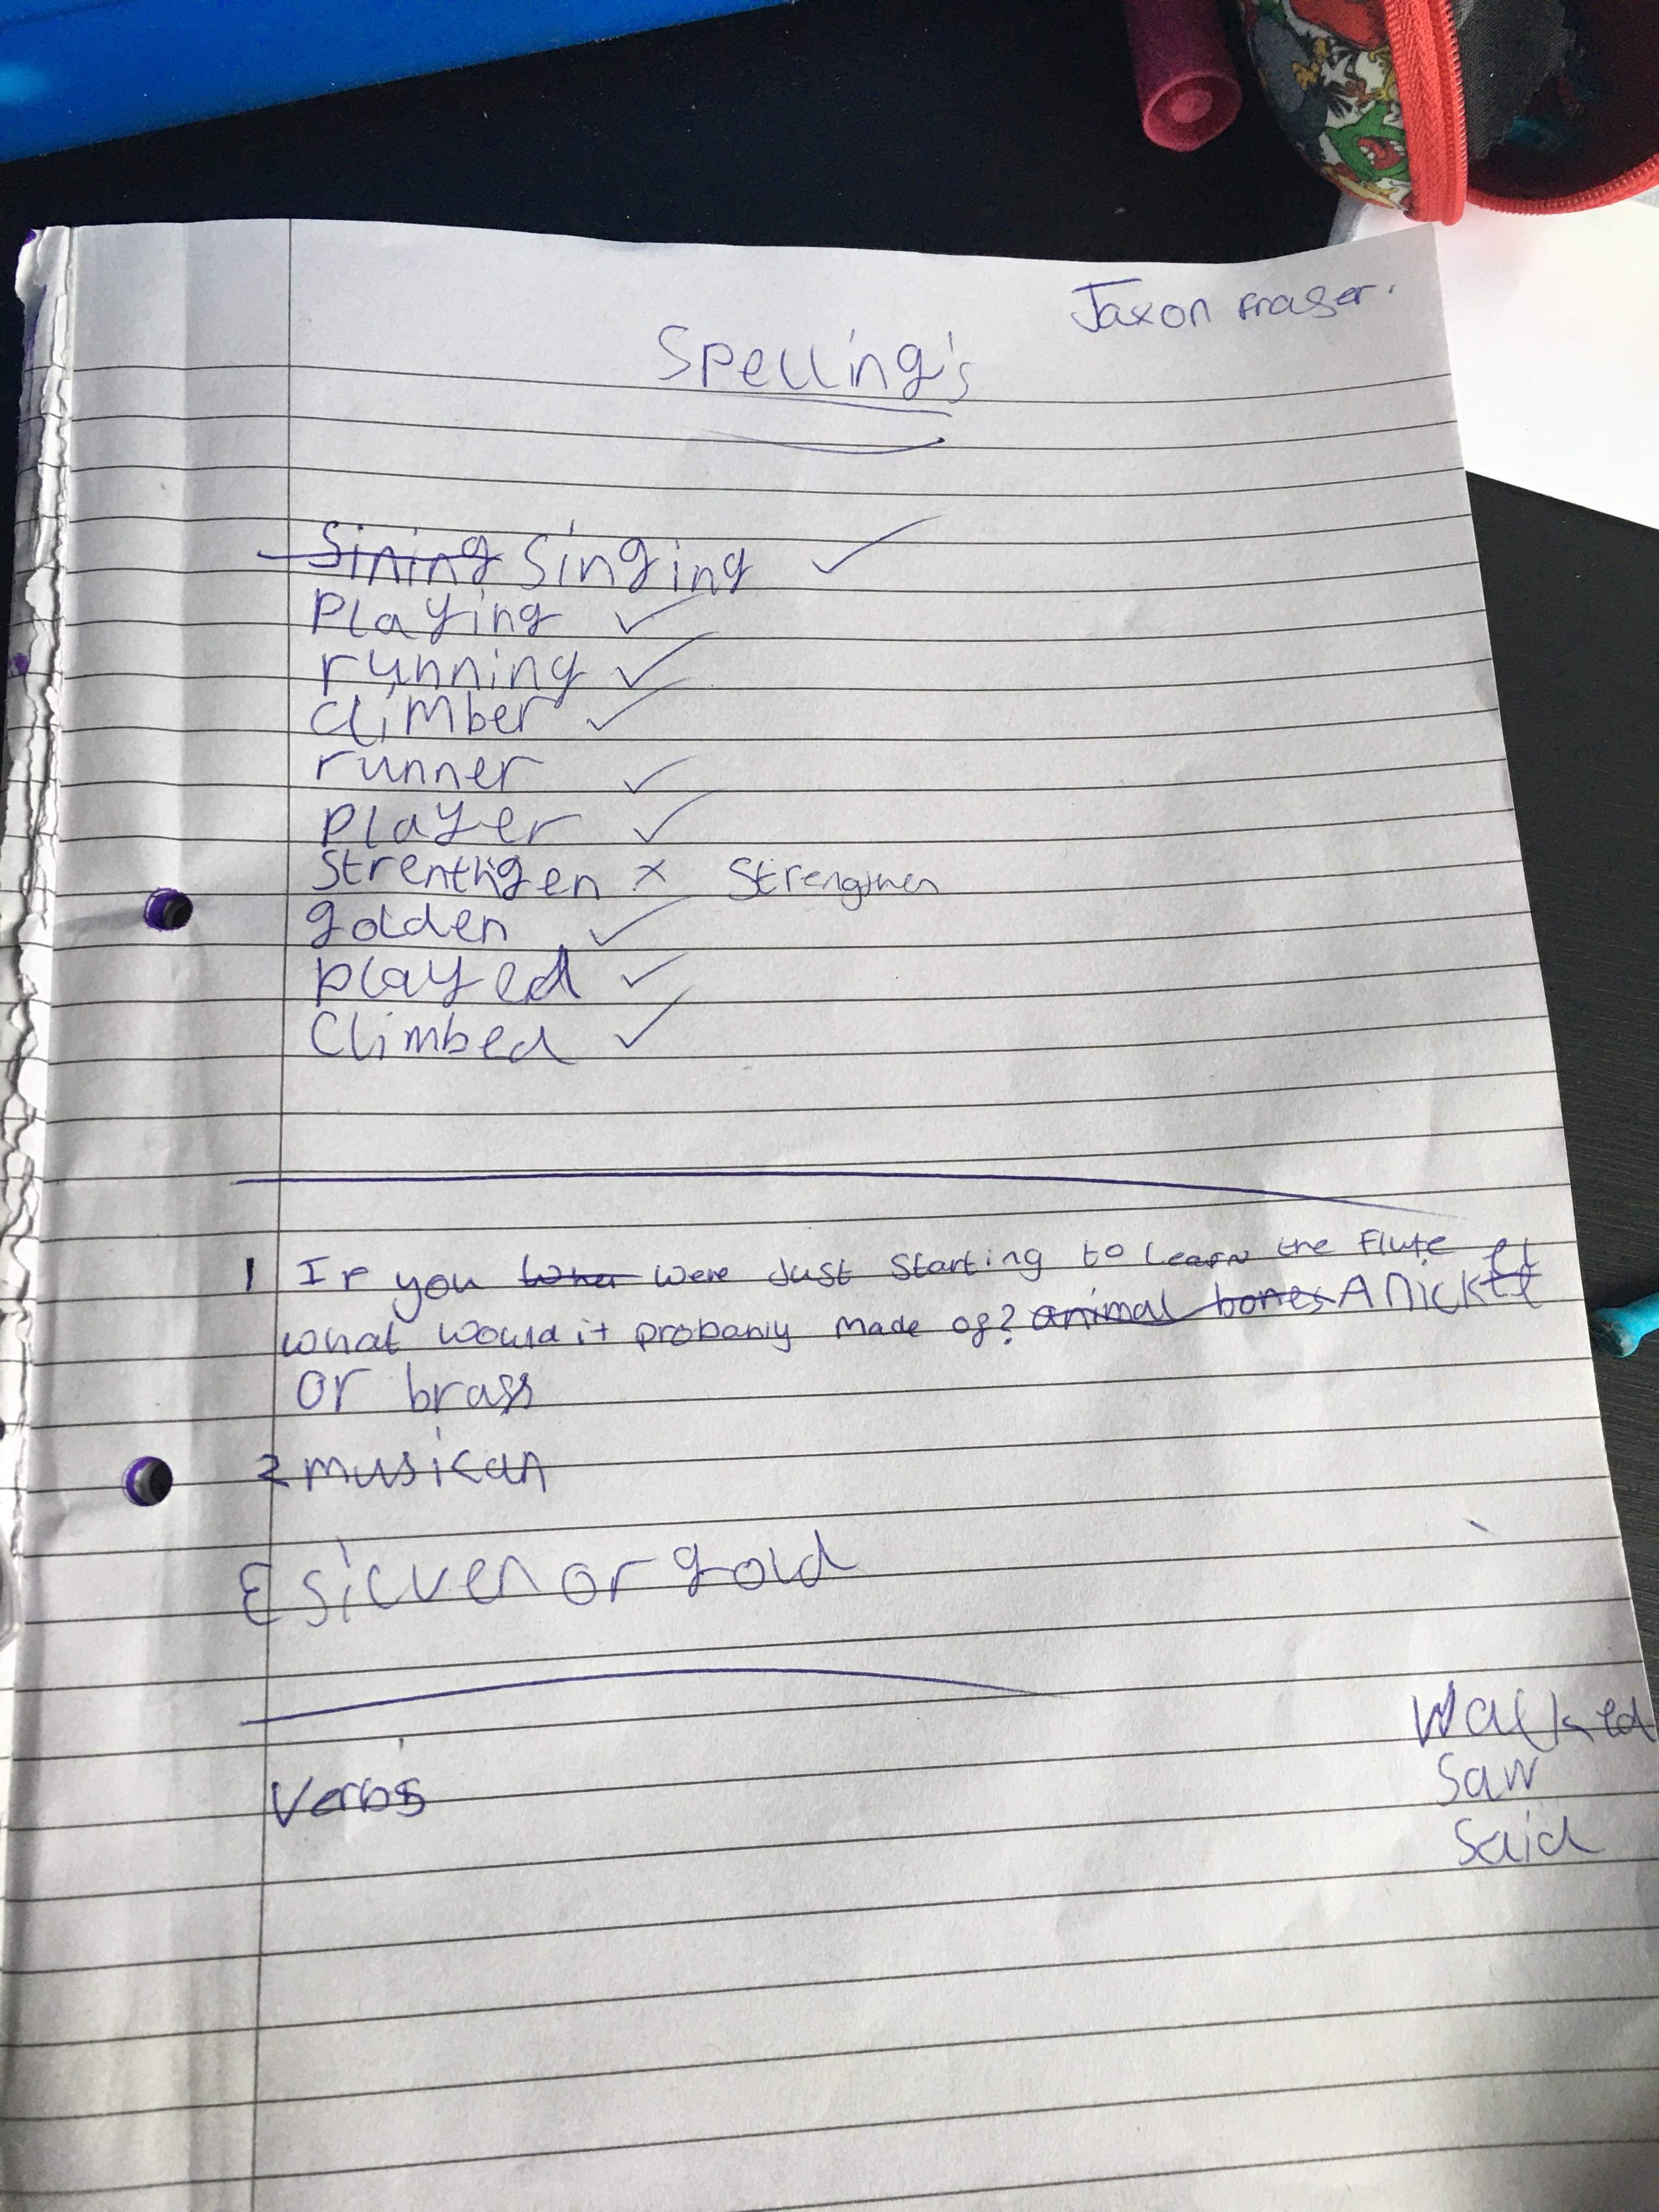 Jaxon Fraser.
Spelling's
Sining Singing ✓
Playing ✓
running ✓
climber ✓
runner ✓
player ✓
Strenthgen x Strengthen
golden ✓
played ✓
Climbed ✓
1 If you were Just Starting to Learn the Flute
what would it probanly made of? animal bones A nickel
or brass
2 musican
3 silver or gold
Walked
Verbs Saw
Said